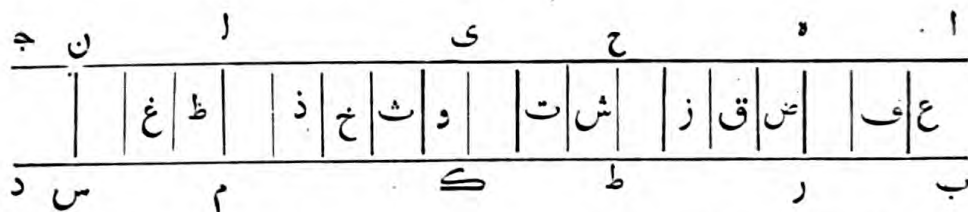 ا ه ح ی ل ن ج
ع ف ض ق ز ش ت و ث خ ذ ظ غ
ب ر ط ک م س د